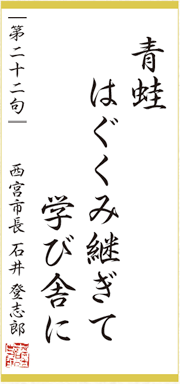 青蛙
はぐくみ継ぎて
学び舎に
第二十二句
西宮市長 石井 登志郎